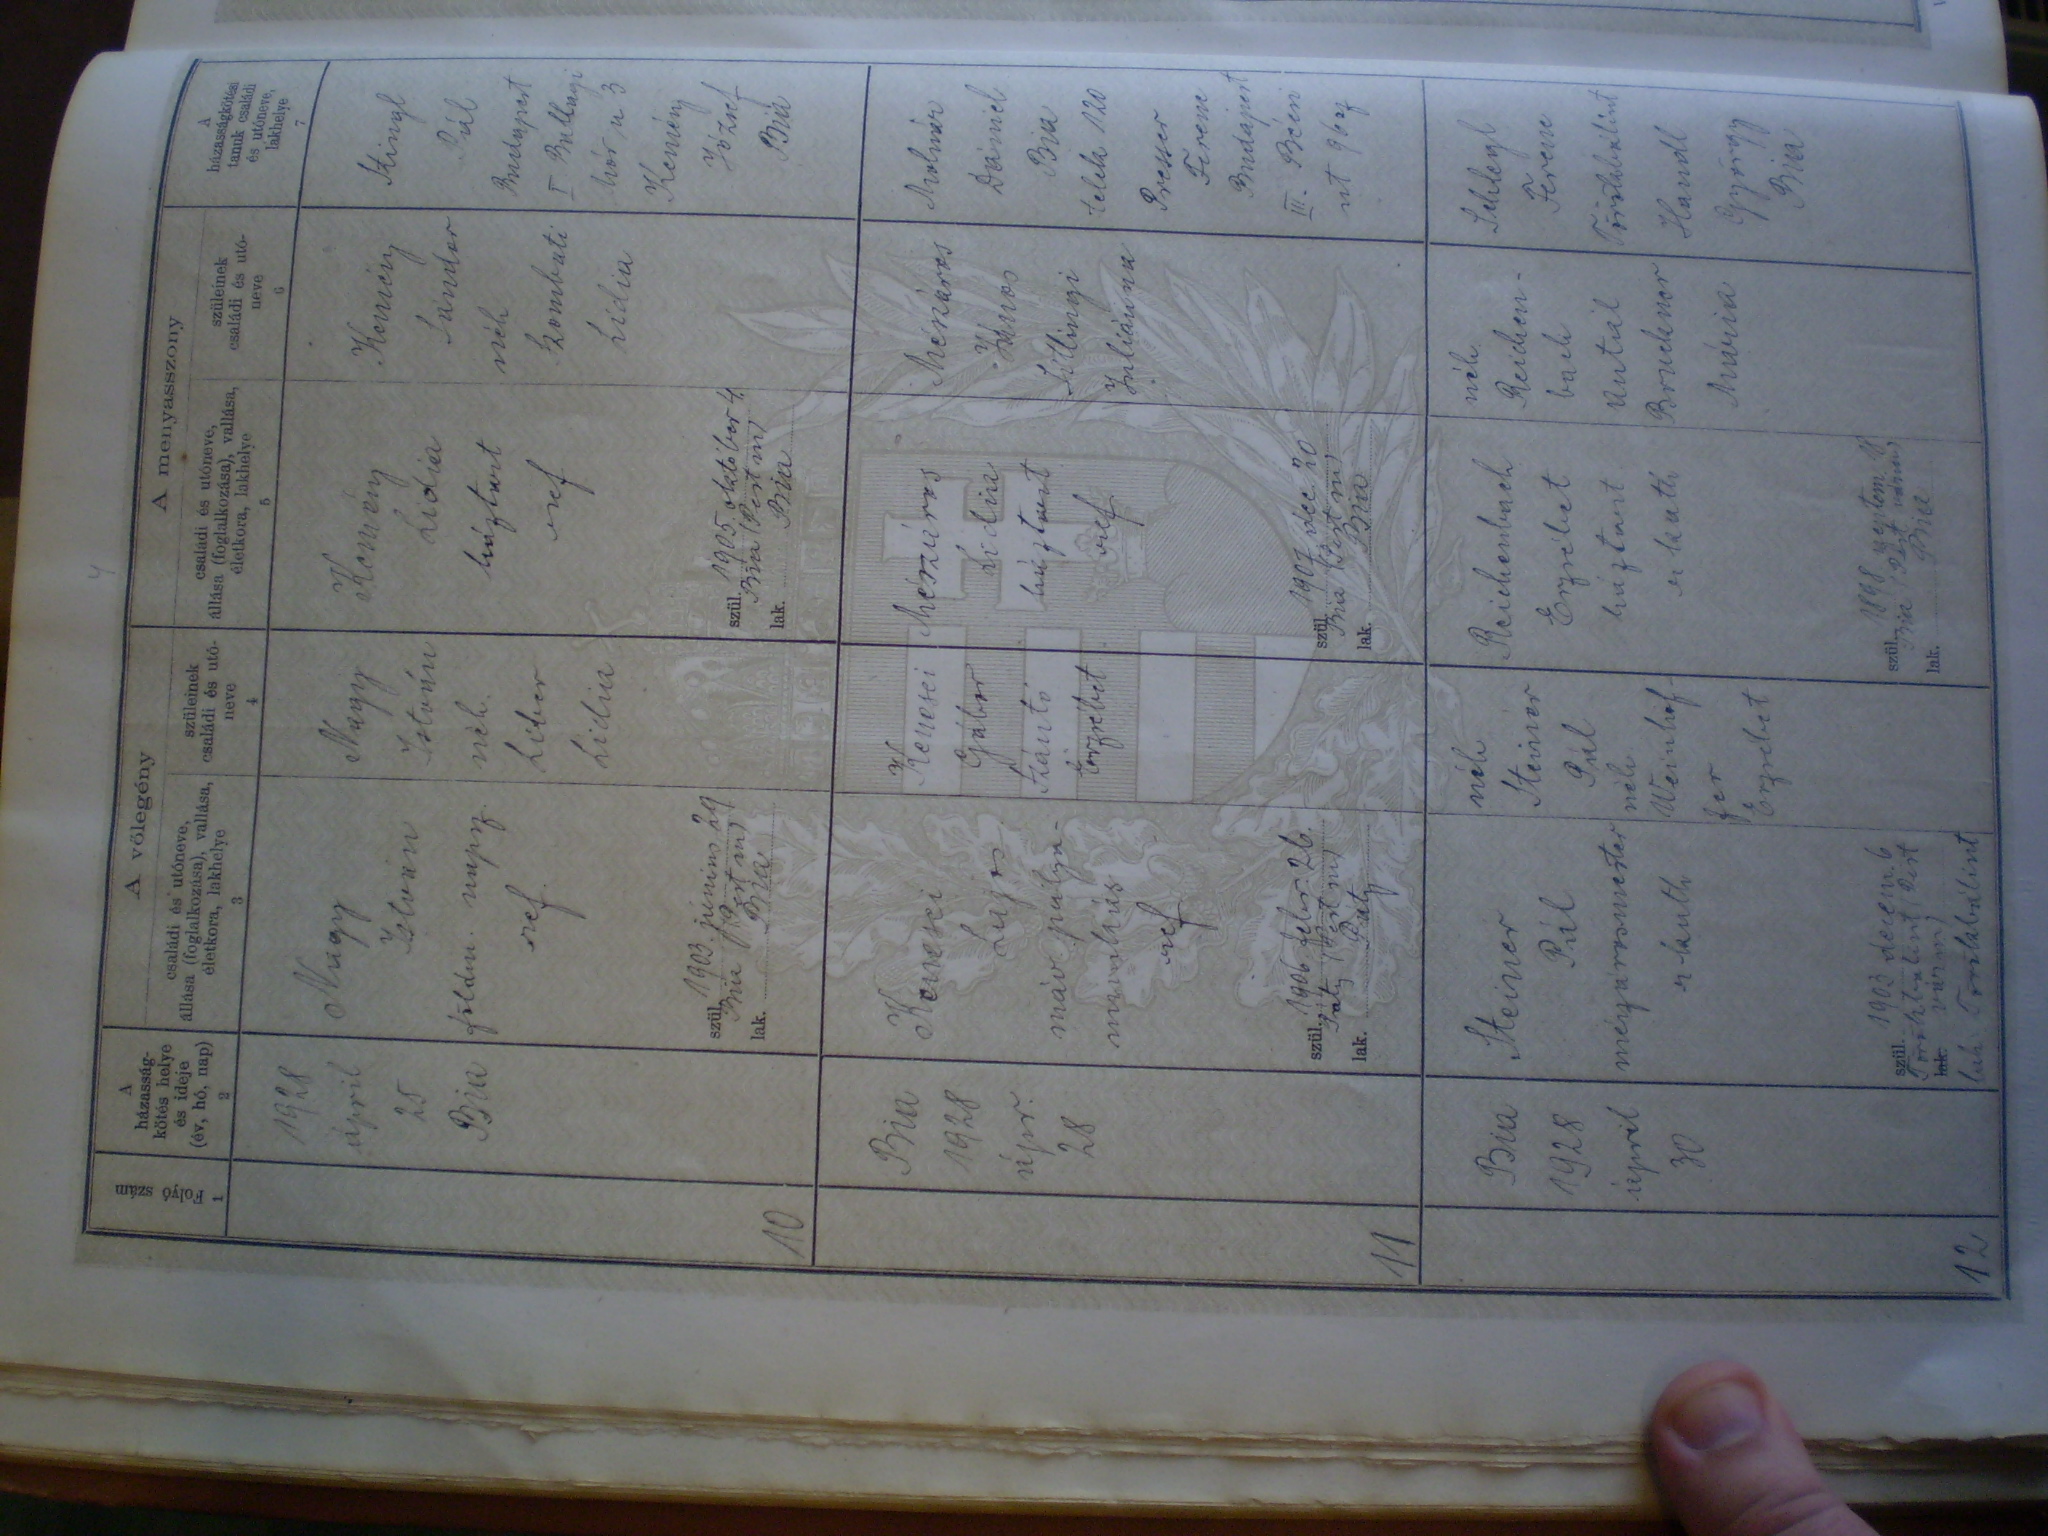 A vőlegény
A menyasszony
Folyó
szám
1
A
házasság-
kötés helye
és ideje
(év, hó, nap)
2
családi és utóneve,
állása (foglalkozása), vallása,
életkora, lakhelye
3
szüleinek
családi és utó-
neve
4
családi és utóneve,
állása (foglalkozása), vallása,
életkora, lakhelye
5
szüleinek
családi és utó-
neve
6
A
házasságkötési
tanuk családi
és utóneve,
lakhelye
7
10
1928
április
25
Bia
Nagy
István
földm. napsz.
ref
szül. 1903. június 29
Bia (Pest m)
lak. Bia
Nagy
István
néh.
Líber
Lidia
Kemény
Lidia
háztart
ref
szül. 1905. október 4.
Bia (Pest m)
lak. Bia
Kemény
Sándor
néh
Szombati
Lidia
Pál
Budapest
I
3
Kemény
József
Bia
11
Bia
1928
ápr.
28
Kenesei
Lajos
máv pálya-
munkás
ref
szül. 1906 febr 26.
Páty (Pest m)
lak. Páty
Kenesei
Gábor
Szántó
Erzsébet
Mészáros
Lidia
háztart
ref
szül. 1907 dec 20
Bia (Pest m)
lak. Bia
Mészáros
János
Juliánna
Molnár
Dániel
Bia
telek 120
Presser
Ferenc
Budapest
III. Bécsi
út
12
Bia
1928
április
30
Steiner
Pál
mészárosmester
r kath
szül. 1903 decemb 6
Törökbálint (Pest
várm)
lak.
lak Törökbálint
néh
Steiner
Pál
néh
Weinhof-
fer
Erzsébet
Reichenbach
Erzsébet
háztart
r kath
szül. 1898 septem 8
Bia (Pest várm)
lak. Bia
néh.
Reichen-
bach
Antal
Bruckner
Mária
Ferenc
Törökbálint
Handl
György
Bia